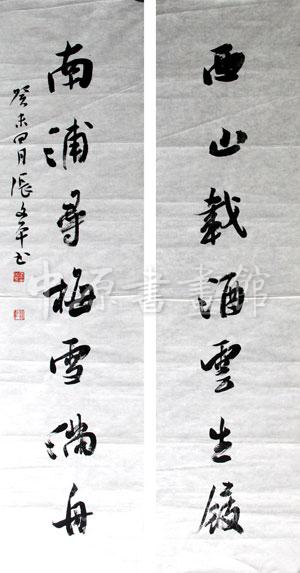 西山載酒雲生屐
南浦尋梅雪滿舟
癸未四月張文平书
中原書畫館